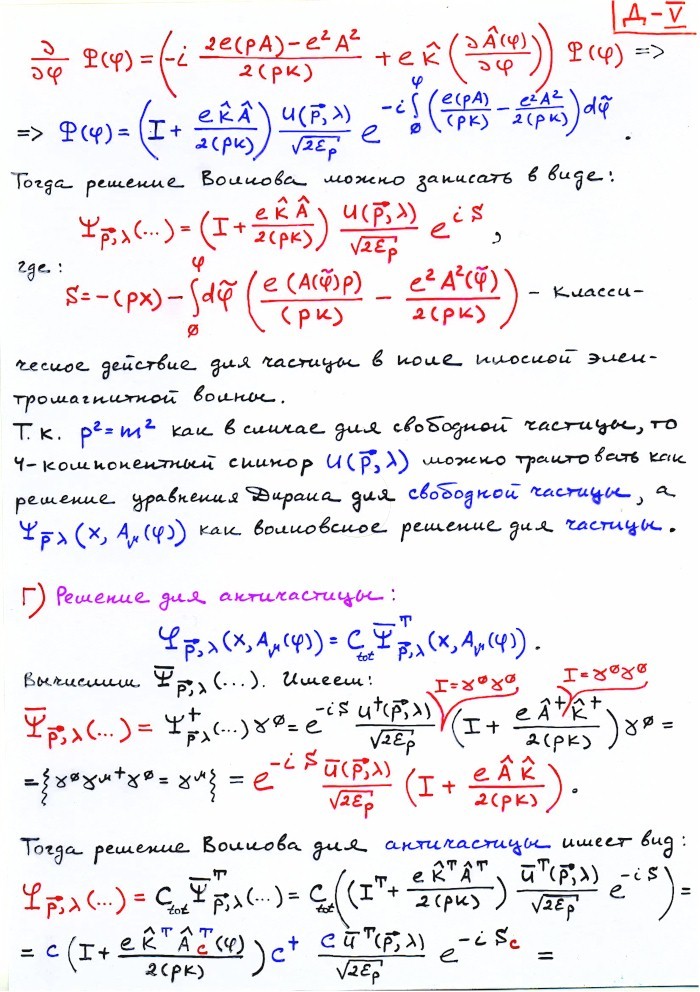 Д-V
∂/∂φ Φ(φ) = (-i (2e(pA) - e²A²)/(2(pk)) + e k̂ (∂Â(φ)/∂φ)) Φ(φ) =>
=> Φ(φ) = (I + e k̂ Â/(2(pk))) u(p⃗, λ)/√(2ε_p) e^{-i ∫_0^φ (e(pA)/(pk) - e²A²/(2(pk))) dφ̃} .
Тогда решение Волкова можно записать в виде:
Ψ_{p⃗, λ}(...) = (I + e k̂ Â/(2(pk))) u(p⃗, λ)/√(2ε_p) e^{iS} ,
где:
S = -(px) - ∫_0^φ dφ̃ (e(A(φ̃)p)/(pk) - e²A²(φ̃)/(2(pk))) - класси-
ческое действие для частицы в поле плоской элек-
тромагнитной волны.
Т.к. p² = m² как в случае для свободной частицы, то
4-компонентный спинор u(p⃗, λ) можно трактовать как
решение уравнения Дирака для свободной частицы, а
Ψ_{p⃗ λ}(x, A_μ(φ)) как волковское решение для частицы.
Г) Решение для античастицы:
φ_{p⃗, λ}(x, A_μ(φ)) = C_tot Ψ̄^T_{p⃗, λ}(x, A_μ(φ)) .
Вычислим Ψ̄_{p⃗, λ}(...). Имеем: I = γ⁰γ⁰ I = γ⁰γ⁰
Ψ̄_{p⃗, λ}(...) = Ψ⁺_{p⃗ λ}(...) γ⁰ = e^{-iS} u⁺(p⃗, λ)/√(2ε_p) (I + e Â⁺ k̂⁺/(2(pk))) γ⁰ =
= {γ⁰γ^{μ+}γ⁰ = γ^μ} = e^{-iS} ū(p⃗, λ)/√(2ε_p) (I + e Â k̂/(2(pk))) .
Тогда решение Волкова для античастицы имеет вид:
φ_{p⃗, λ}(...) = C_tot Ψ̄^T_{p⃗, λ}(...) = C_tot ((I^T + e k̂^T Â^T/(2(pk))) ū^T(p⃗, λ)/√(2ε_p) e^{-iS}) =
= C (I + e k̂^T Â_c^T(φ)/(2(pk))) C⁺ C ū^T(p⃗, λ)/√(2ε_p) e^{-iS_c} =